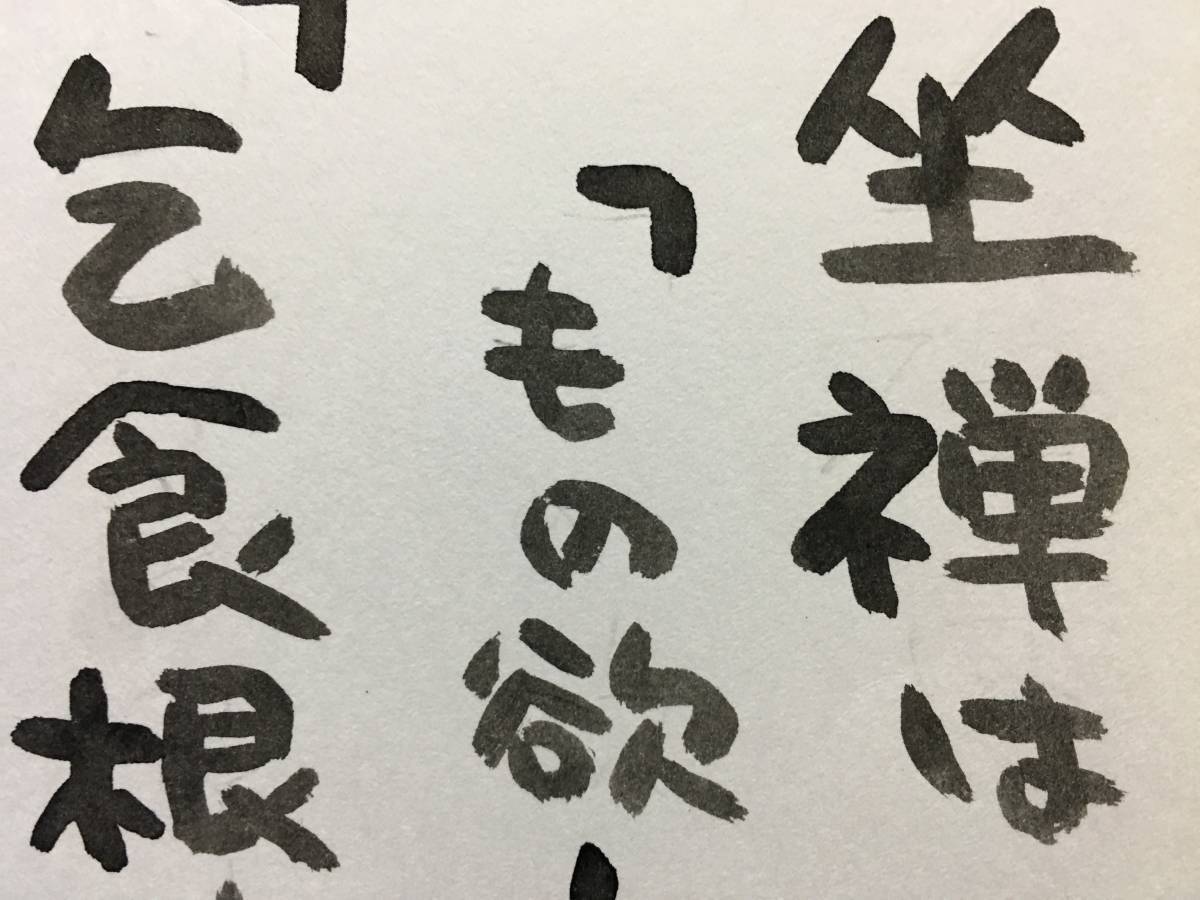 坐禅は
「もの欲
乞食根